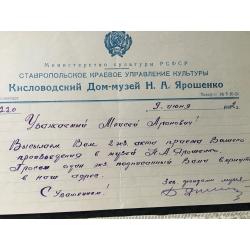 Министерство культуры РСФСР
СТАВРОПОЛЬСКОЕ КРАЕВОЕ УПРАВЛЕНИЕ КУЛЬТУРЫ
Кисловодский Дом-музей Н. А. Ярошенко
9 июня
Уважаемый Моисей Аронович!
Высылаем Вам 2 экз. акта приема Вашего
произведения в музей Н.А. Ярошенко.
Просим один экз. подписанный Вами вернуть
в наш адрес.
С Уважением!
музея